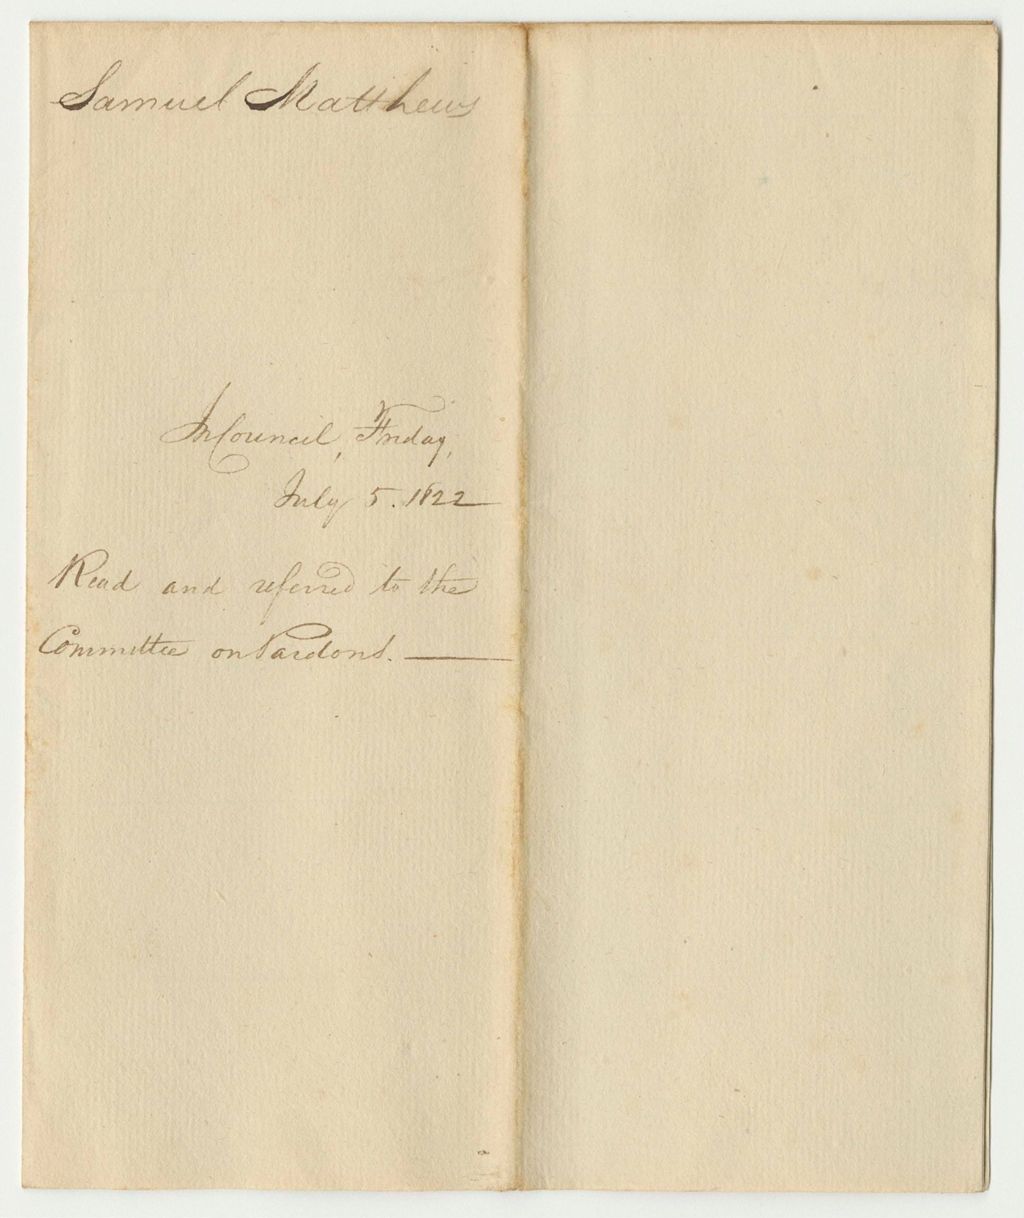 Samuel Matthews
In Council, Friday,
July 5. 1822
Read and referred to the
Committee on Pardons.